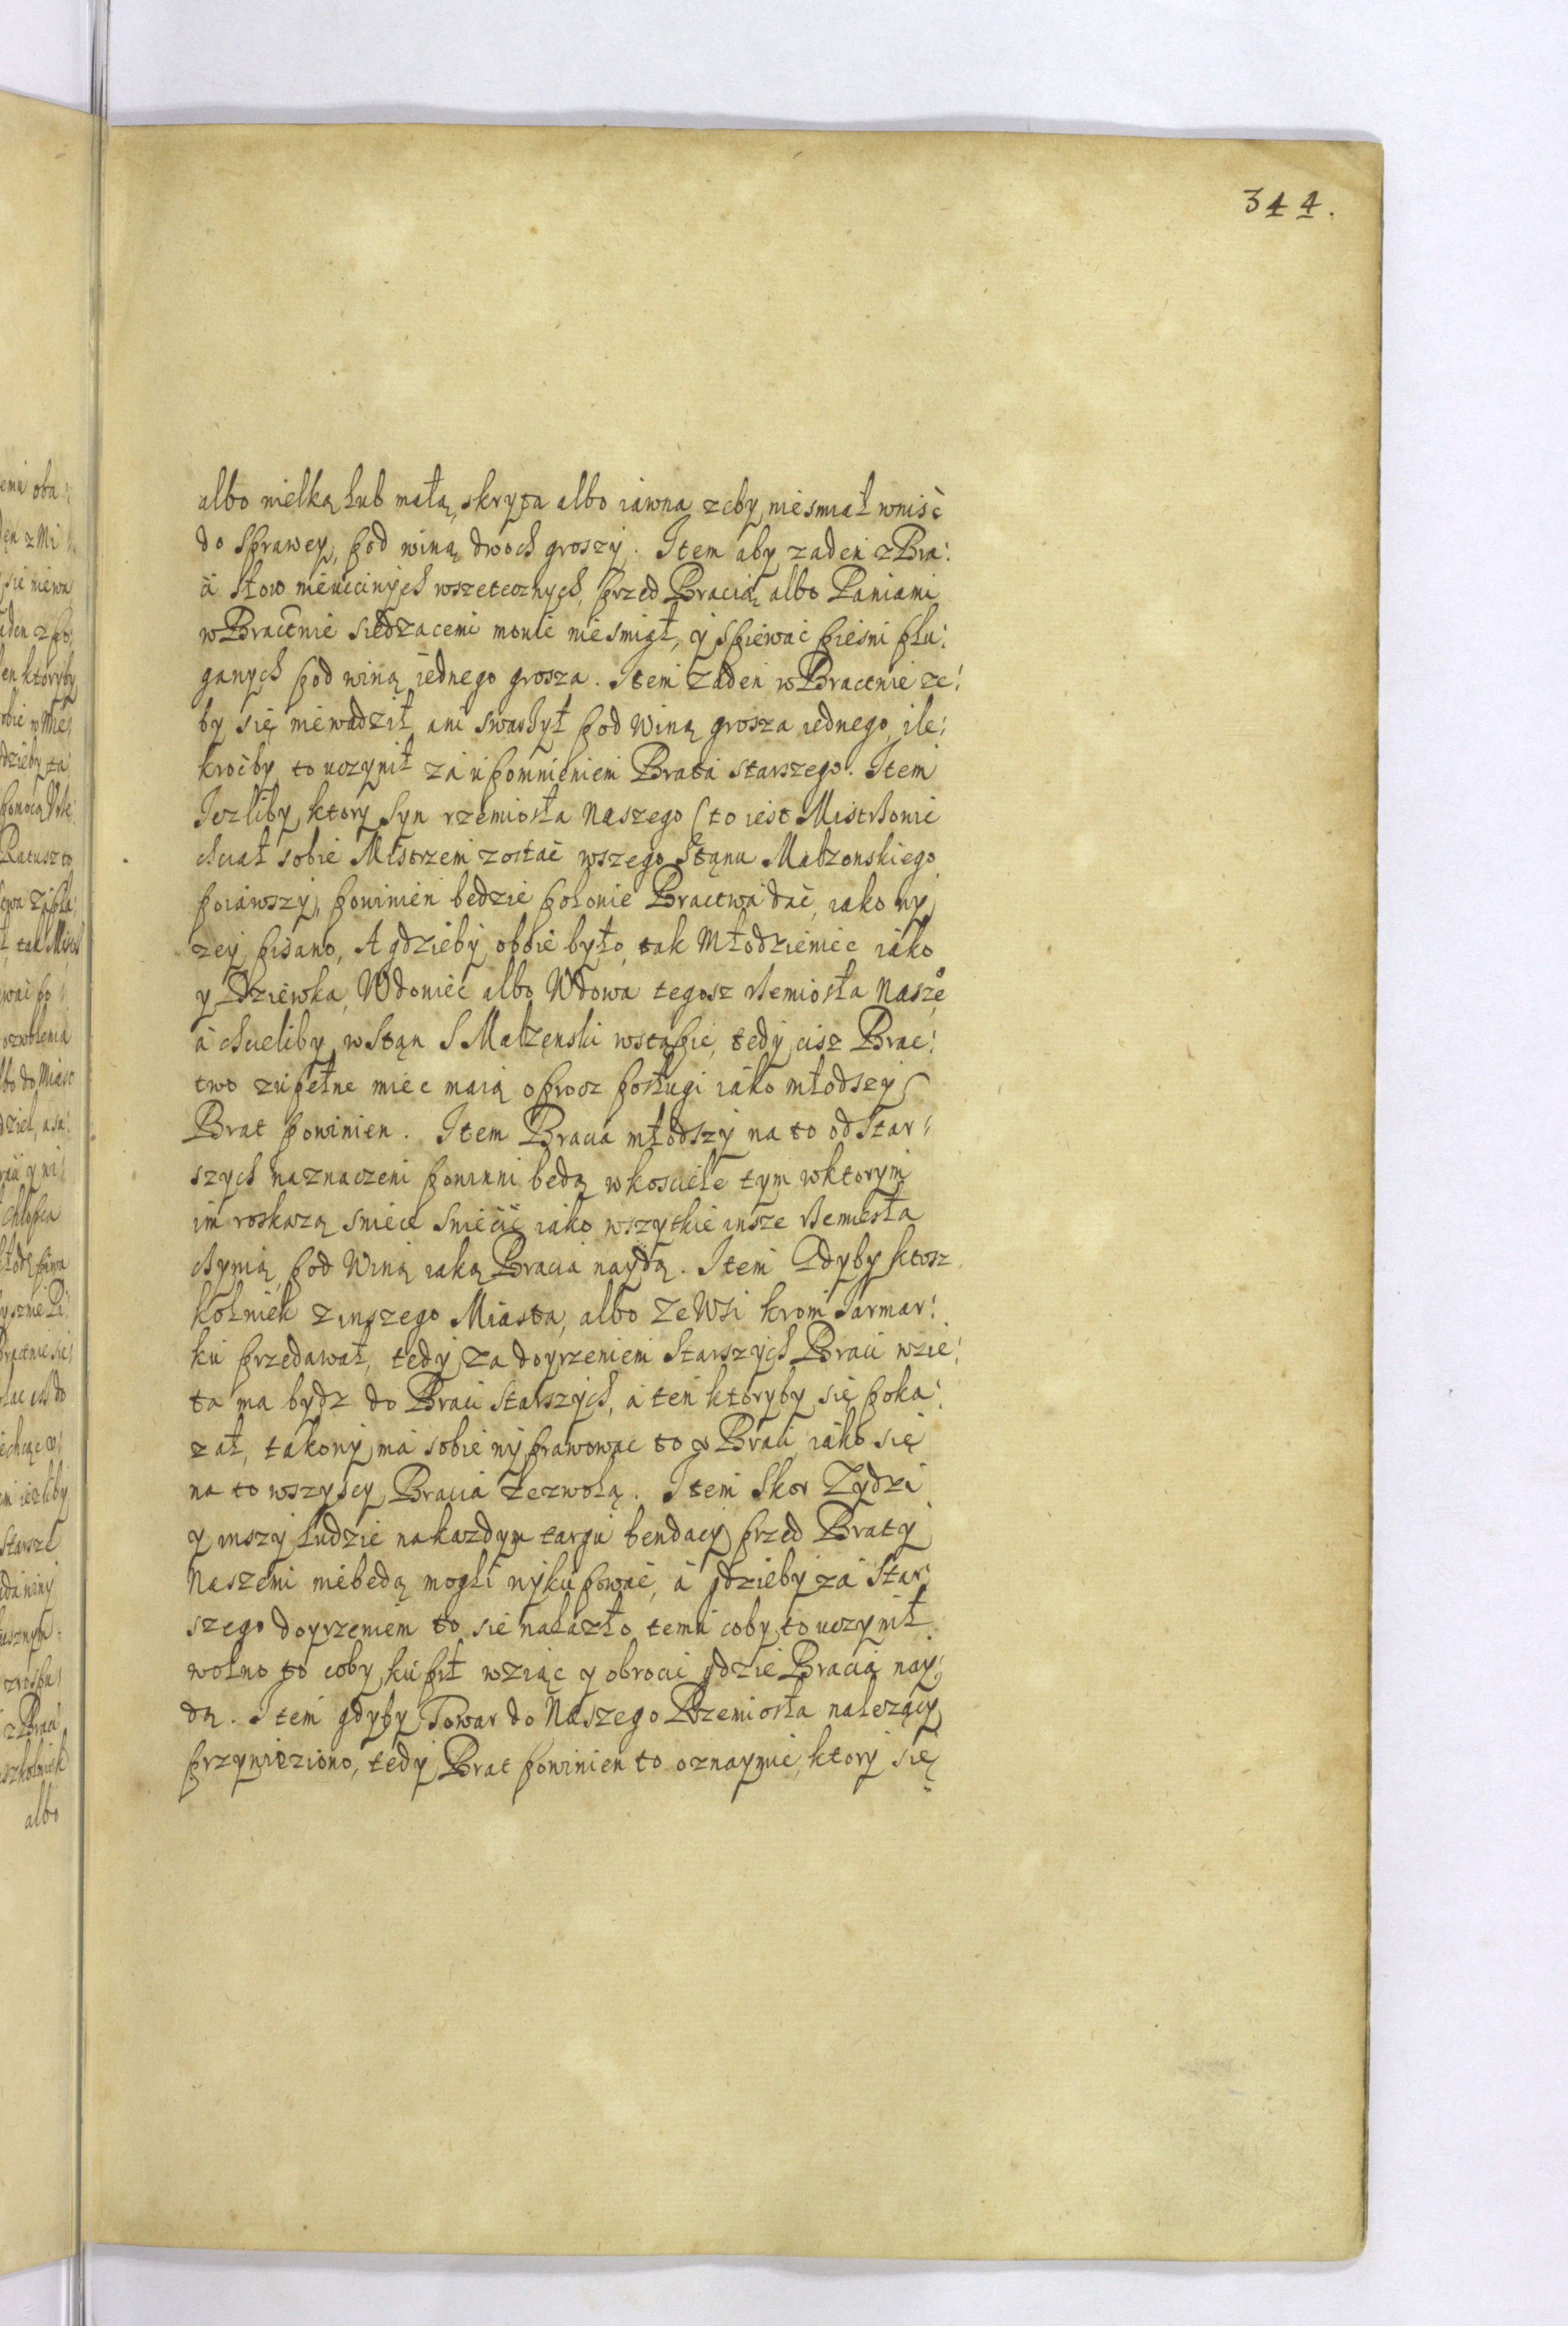 344.
albo wielką lub małą, skryta albo iawna zeby niesmiał wniść
do Sprawey, pod winą dwoch groszy. Item aby zaden z Bra:
ci Słow nieuciwych wszetecznych, przed Bracią albo Paniami
w Bractwie siedzacemi mowić niesmiał, y Spiewać piesni plu:
gawych pod winą iednego grosza. Item Zaden w Bractwie ze:
by się niewadził ani swarzył pod Winą grosza iednego, ile:
kroćby to uczynił za upomnieniem Brata starszego. Item
Iezliby ktory Syn rzemiosła Naszego (to iest Mistrzowie
chciał sobie Mistrzem zostać wszego Stanu Małzonskiego
poiawszy, powinien bedzie połowie Bractwa dać, iako wy
zey pisano, A gdzieby oboie było, tak Młodzieniec iako
y Dziewka, Wdowiec albo Wdowa tegosz Rzemiosła Nasze͛
a chcieliby w Stąn S Małzęnski wstąpić, tedy cisz Brac:
two zupełne miec maią oprocz posługi iako młodszy
Brat powinien. Item Bracia młodszy na to od Star:
szych naznaczeni powinni bedą w kosciele tym w ktorym
im roskazą swiece Swiecić iako wszytkie insze Rzemiesła
czynią, pod Winą iaką Bracia naydą. Item Gdyby ktosz
kolwiek z inszego Miasta, albo Ze Wsi krom Iarmar:
ku przedawał, tedy za doyrzeniem Starszych Braci wzie:
ta ma bydz do Braci Starszych, a ten ktoryby się poka:
zał, takowy ma sobie wyprawowac to v Braci iako się
na to wszyscy Bracia zezwolą. Item Skor Zydzi
y inszy Ludzie na kazdym targu bendacy przed Braty
Naszemi niebedą mogli wykupować, a gdzieby za Star:
szego doyrzeniem to sie nalazło, temu coby to uczynił
wolno to coby kupił wziąc y obrocić gdzie Bracia nay:
dą. Item gdyby Towar do Naszego Rzemiosła nalezący
przywieziono, tedy Brat powinien to oznaymić, ktory się